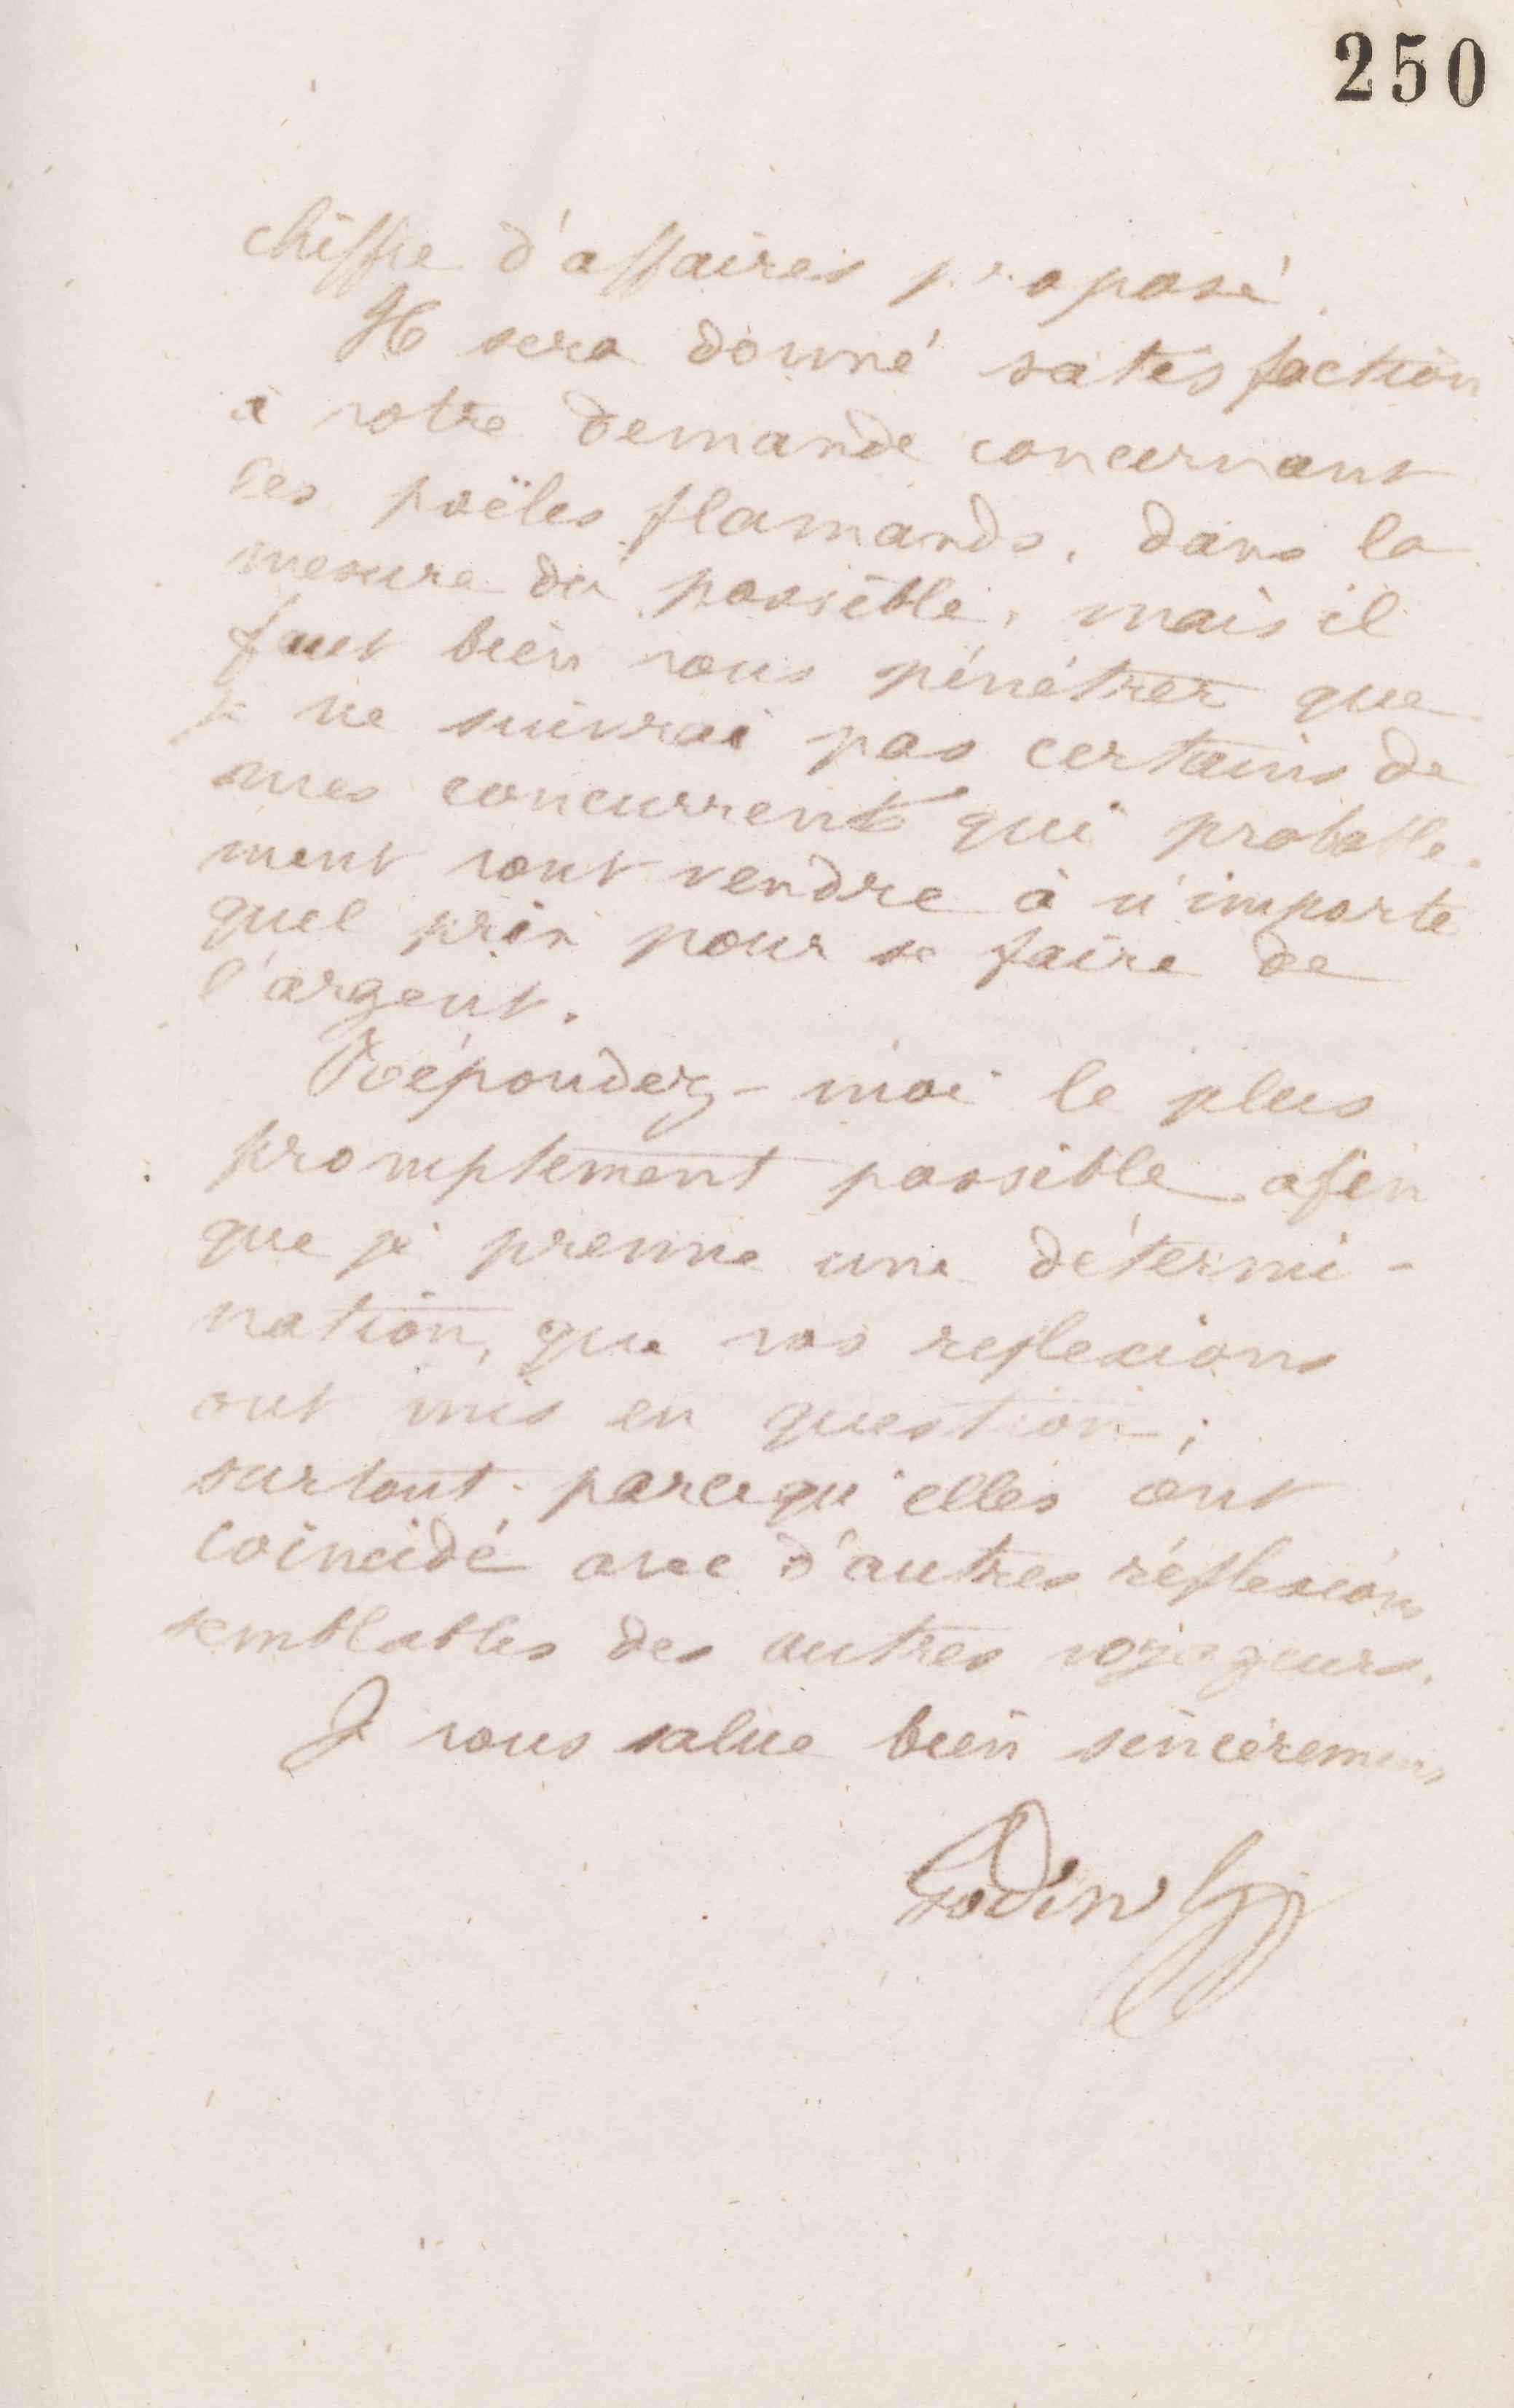 250
chiffre d'affaires proposé.
Il sera donné satisfaction
à votre demande concernant
les poëles flamands, dans la
mesure du possible, mais il
faut bien vous pénétrer que
je ne suivrai pas certains de
mes concurrents qui probable-
ment vont vendre à n'importe
quel prix pour se faire de
l'argent.
Répondez-moi le plus
promptement possible afin
que je prenne une détermi-
nation, que vos reflexions
ont mis en question;
surtout parcequ'elles ont
coïncidé avec d'autres réflexions
semblables des autres voyageurs.
Je vous salue bien sincèrement
Godin